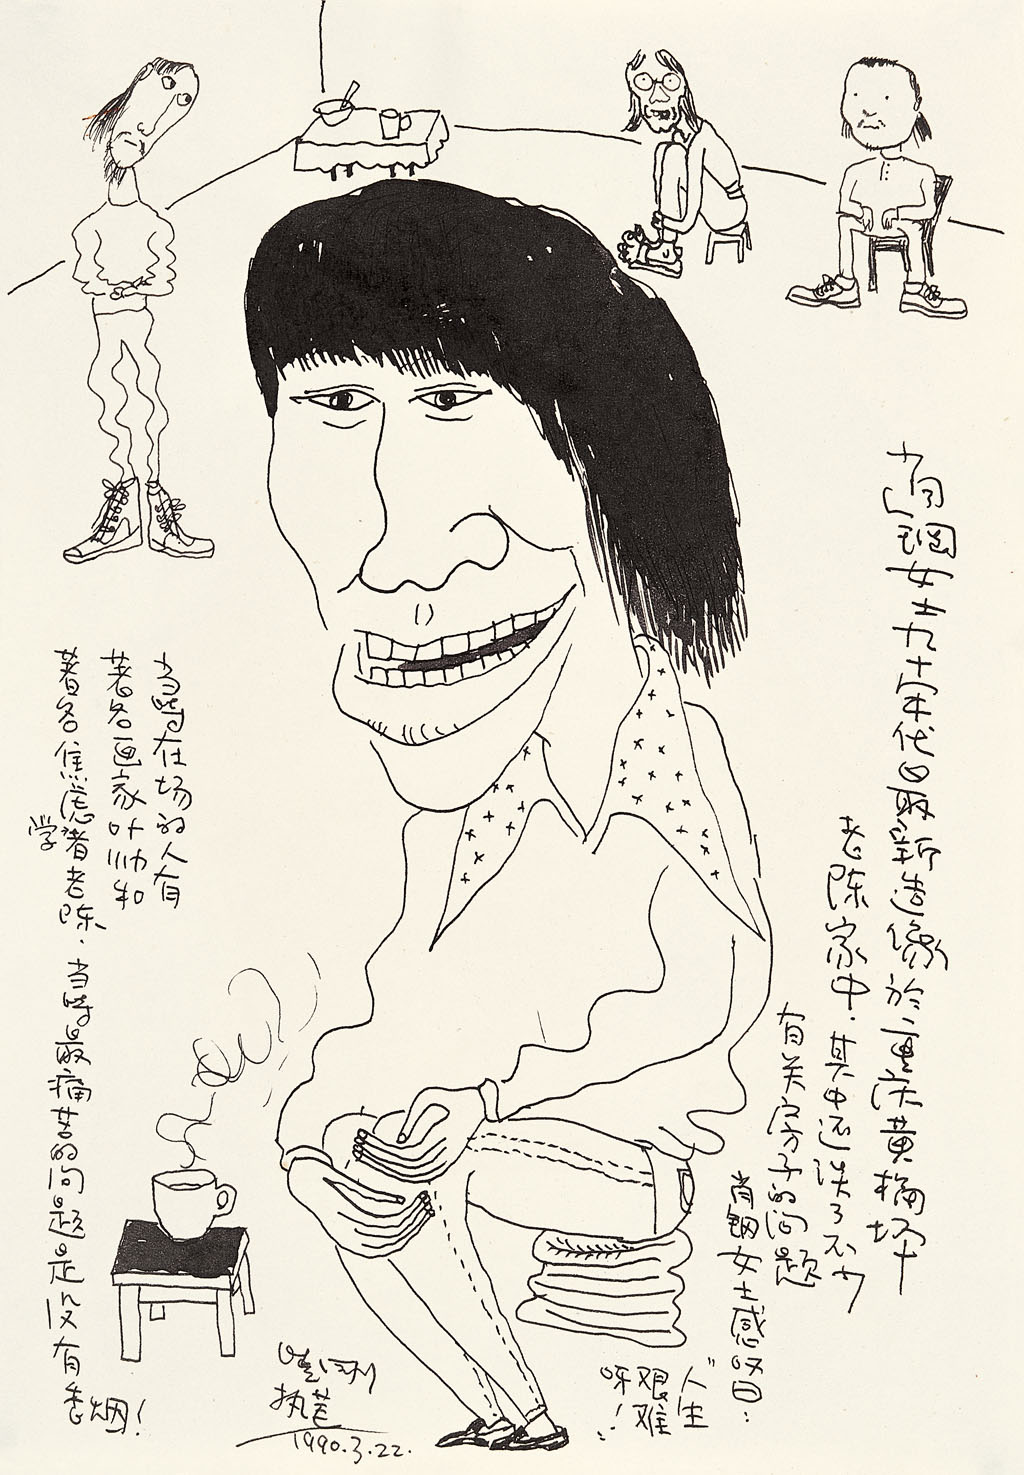 肖钢女士九十年代最新造像於重庆黄桷坪
老陈家中.其中还谈了不少
有关房子的问题
肖钢女士感叹曰:
"人生
艰难
呀!"
当时在场的人有
著名画家叶帅和
著名焦虑学者老陈.当时最痛苦的问题是没有香烟!
执笔
1990.3.22.